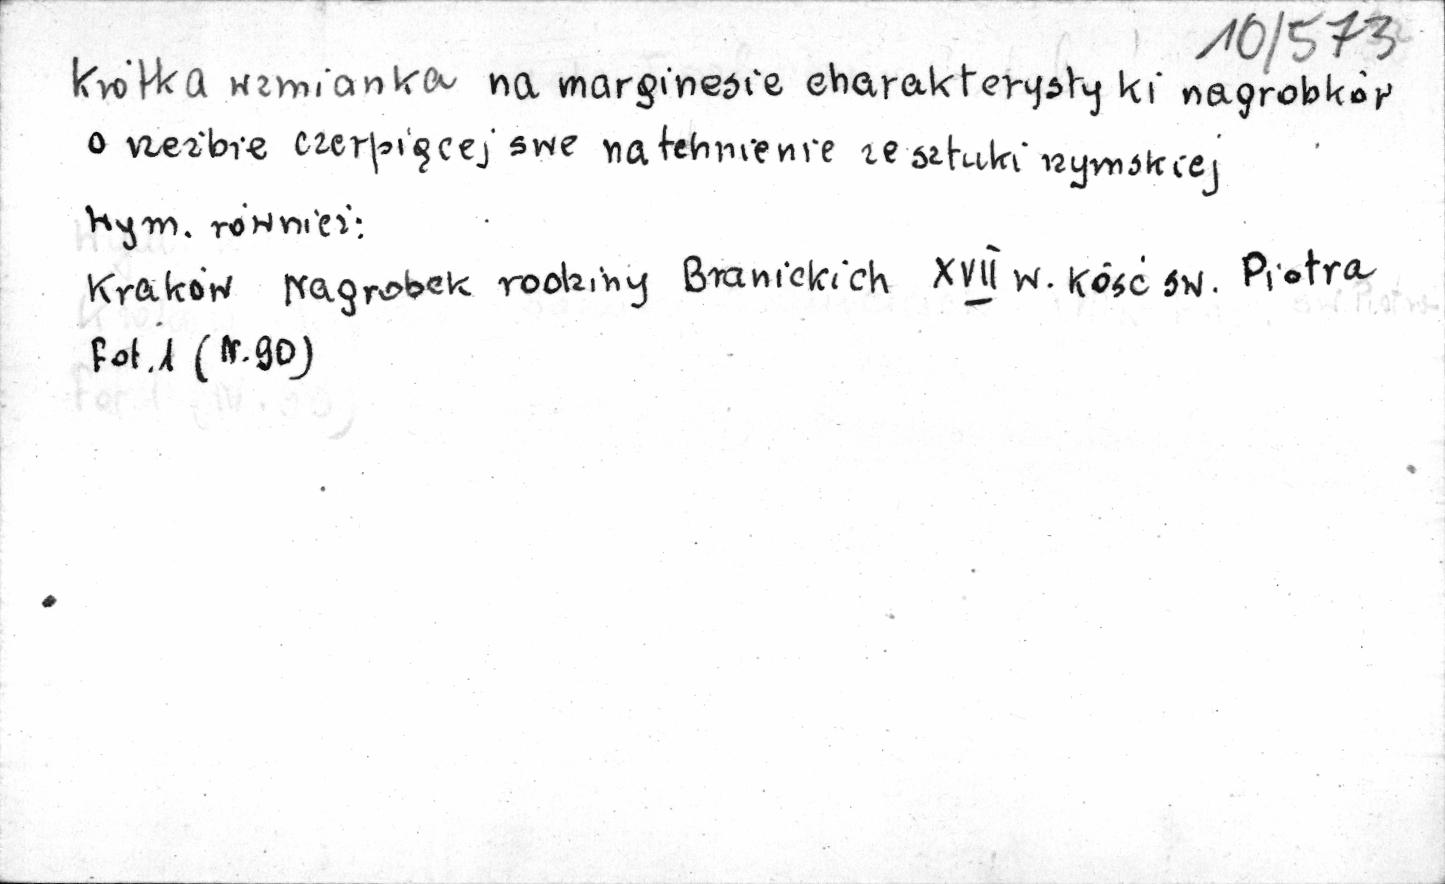 10/573
Krótka wzmianka na marginesie charakterystyki nagrobków
o rzeźbie czerpiącej swe natchnienie ze sztuki rzymskiej
Wym. również:
Kraków Nagrobek rodziny Branickich XVII w. kość św. Piotra
Fot. 1 (N. 90)